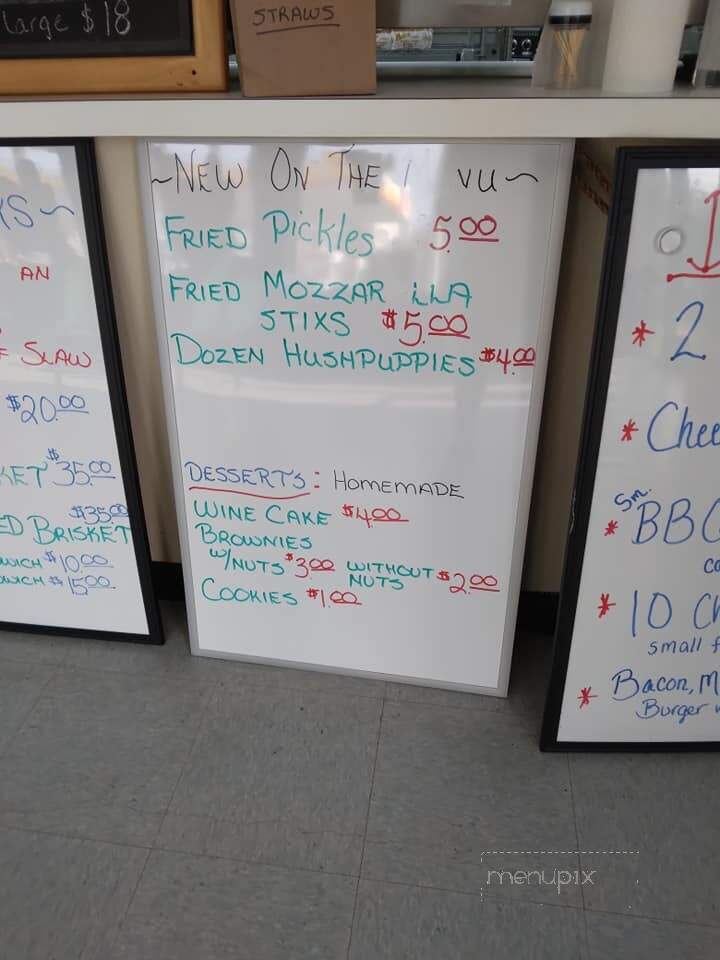 Large $18
STRAWS
AN
SLAW
$20.00
$35.00
$35.00
BRISKET
$10.00
$15.00
~NEW ON THE VU~
FRIED Pickles 5.00
FRIED MOZZAR LLA
STIXS $5.00
DOZEN HUSHPUPPIES $4.00
DESSERTS: HOMEMADE
WINE CAKE $4.00
BROWNIES
W/NUTS $3.00 WITHOUT NUTS $2.00
COOKIES $1.00
* 2
* Chee
* Sm. BBQ
* 10 Ch
small f
* Bacon, M
Burger w
menupix